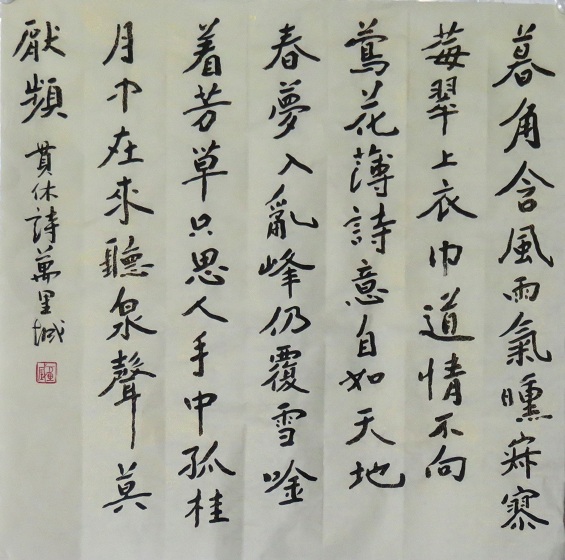 暮角含風雨氣曛寂寥
莓翠上衣巾道情不向
鶯花薄詩意自如天地
春夢入亂峰仍覆雪唫
着芳草只思人手中孤桂
月中在來聽泉聲莫
厭頻 貫休詩萬里城